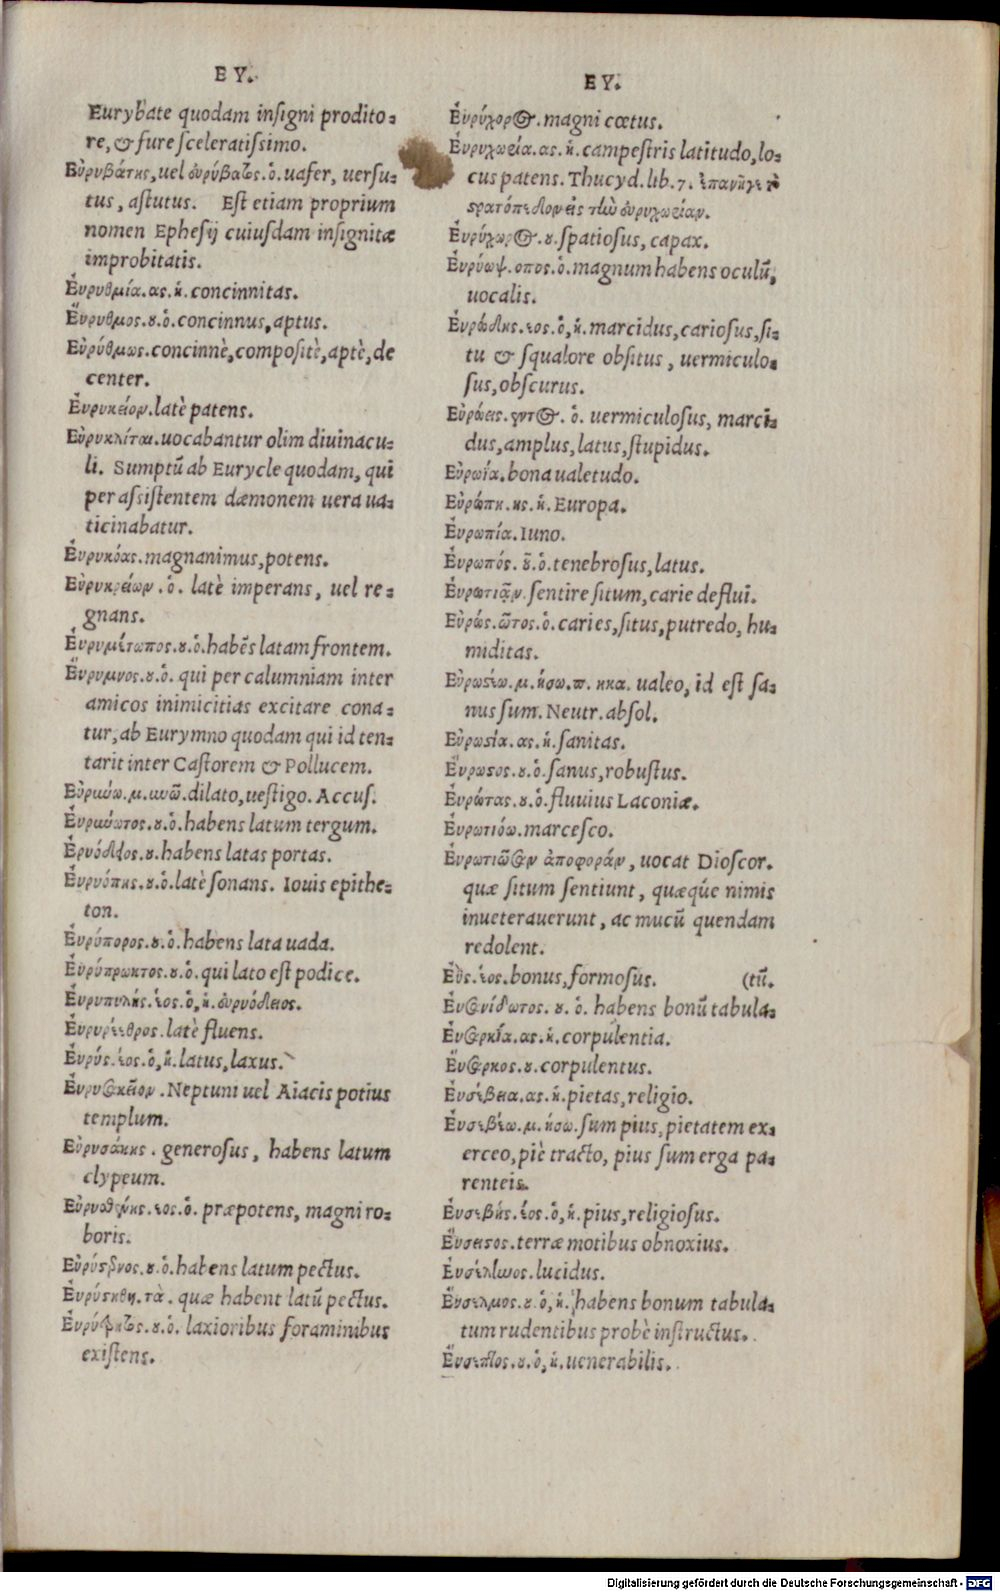 EY.
Eurybate quodam insigni prodito-
re, & fure sceleratissimo.
Εὐρυβάτης, uel εὐρύβατος. ὁ. uafer, uersu-
tus, astutus. Est etiam proprium
nomen Ephesij cuiusdam insignitæ
improbitatis.
Εὐρυθμία. ας. ἡ. concinnitas.
Εὔρυθμος. ου. ὁ. concinnus, aptus.
Εὐρύθμως. concinnè, compositè, aptè, de
center.
Εὐρυκείον. latè patens.
Εὐρυκλίται. uocabantur olim diuinacu-
li. Sumptũ ab Eurycle quodam, qui
per assistentem dæmonem uera ua-
ticinabatur.
Εὐρυκόας. magnanimus, potens.
Εὐρυκρείων. ὁ. latè imperans, uel re-
gnans.
Εὐρυμέτωπος. ου. ὁ. habẽs latam frontem.
Εὔρυμνος. ου. ὁ. qui per calumniam inter
amicos inimicitias excitare cona-
tur, ab Eurymno quodam qui id ten-
tarit inter Castorem & Pollucem.
Εὐρυνω. μ. υνῶ. dilato, uestigo. Accus.
Εὐρυνωτος. ου. ὁ. habens latum tergum.
Εὐρυόδιος. ου. habens latas portas.
Εὐρυόπης. ου. ὁ. latè sonans. Iouis epithe-
ton.
Εὐρύπορος. ου. ὁ. habens lata uada.
Εὐρύπρωκτος. ου. ὁ. qui lato est podice.
Εὐρυπυλής. έος. ὁ, ἡ. εὐρυόδειος.
Εὐρυρέεθρος. latè fluens.
Εὐρύς. έος. ὁ, ἡ. latus, laxus.
Εὐρυσακεῖον. Neptuni uel Aiacis potius
templum.
Εὐρυσάκης. generosus, habens latum
clypeum.
Εὐρυσθένης. εος. ὁ. præpotens, magni ro-
boris.
Εὐρύστερνος. ου. ὁ. habens latum pectus.
Εὐρύστηθη. τὰ. quæ habent latũ pectus.
Εὐρύτρητος. ου. ὁ. laxioribus foraminibus
existens.
EY.
Εὐρύχορος. magni cœtus.
Εὐρυχωρία. ας. ἡ. campestris latitudo, lo-
cus patens. Thucyd. lib. 7. ἐπανῆγε τὸ
στρατόπεδον εἰς τὴν εὐρυχωρίαν.
Εὐρύχωρος. ου. spatiosus, capax.
Εὐρύωψ. οπος. ὁ. magnum habens oculũ,
uocalis.
Εὐρώδης. εος. ὁ, ἡ. marcidus, cariosus, si-
tu & squalore obsitus, uermiculo-
sus, obscurus.
Εὐρώεις. εντος. ὁ. uermiculosus, marci-
dus, amplus, latus, stupidus.
Εὐρωία. bona ualetudo.
Εὐρώπη. ης. ἡ. Europa.
Εὐρωπία. Iuno.
Εὐρωπός. οῦ. ὁ. tenebrosus, latus.
Εὐρωτιᾷν. sentire situm, carie deflui.
Εὐρώς. ῶτος. ὁ. caries, situs, putredo, hu-
miditas.
Εὐρωστέω. μ. ήσω. π. ηκα. ualeo, id est sa-
nus sum. Neutr. absol.
Εὐρωστία. ας. ἡ. sanitas.
Εὔρωστος. ου. ὁ. sanus, robustus.
Εὐρώτας. ου. ὁ. fluuius Laconiæ.
Εὐρωτιόω. marcesco.
Εὐρωτιῶσαν ἀποφοράν, uocat Dioscor.
quæ situm sentiunt, quæq́ue nimis
inueterauerunt, ac mucũ quendam
redolent.
Εὖς. έος. bonus, formosus. (tũ.
Εὐσανίδωτος. ου. ὁ. habens bonũ tabula-
Εὐσαρκία. ας. ἡ. corpulentia.
Εὔσαρκος. ου. corpulentus.
Εὐσέβεια. ας. ἡ. pietas, religio.
Εὐσεβέω. μ. ήσω. sum pius, pietatem ex-
erceo, piè tracto, pius sum erga pa-
renteis.
Εὐσεβής. έος. ὁ, ἡ. pius, religiosus.
Εὔσειστος. terræ motibus obnoxius.
Εὐσέληνος. lucidus.
Εὔσελμος. ου. ὁ, ἡ. habens bonum tabula-
tum rudentibus probè instructus.
Εὔσεπτος. ου. ὁ, ἡ. uenerabilis.
Digitalisierung gefördert durch die Deutsche Forschungsgemeinschaft - DFG